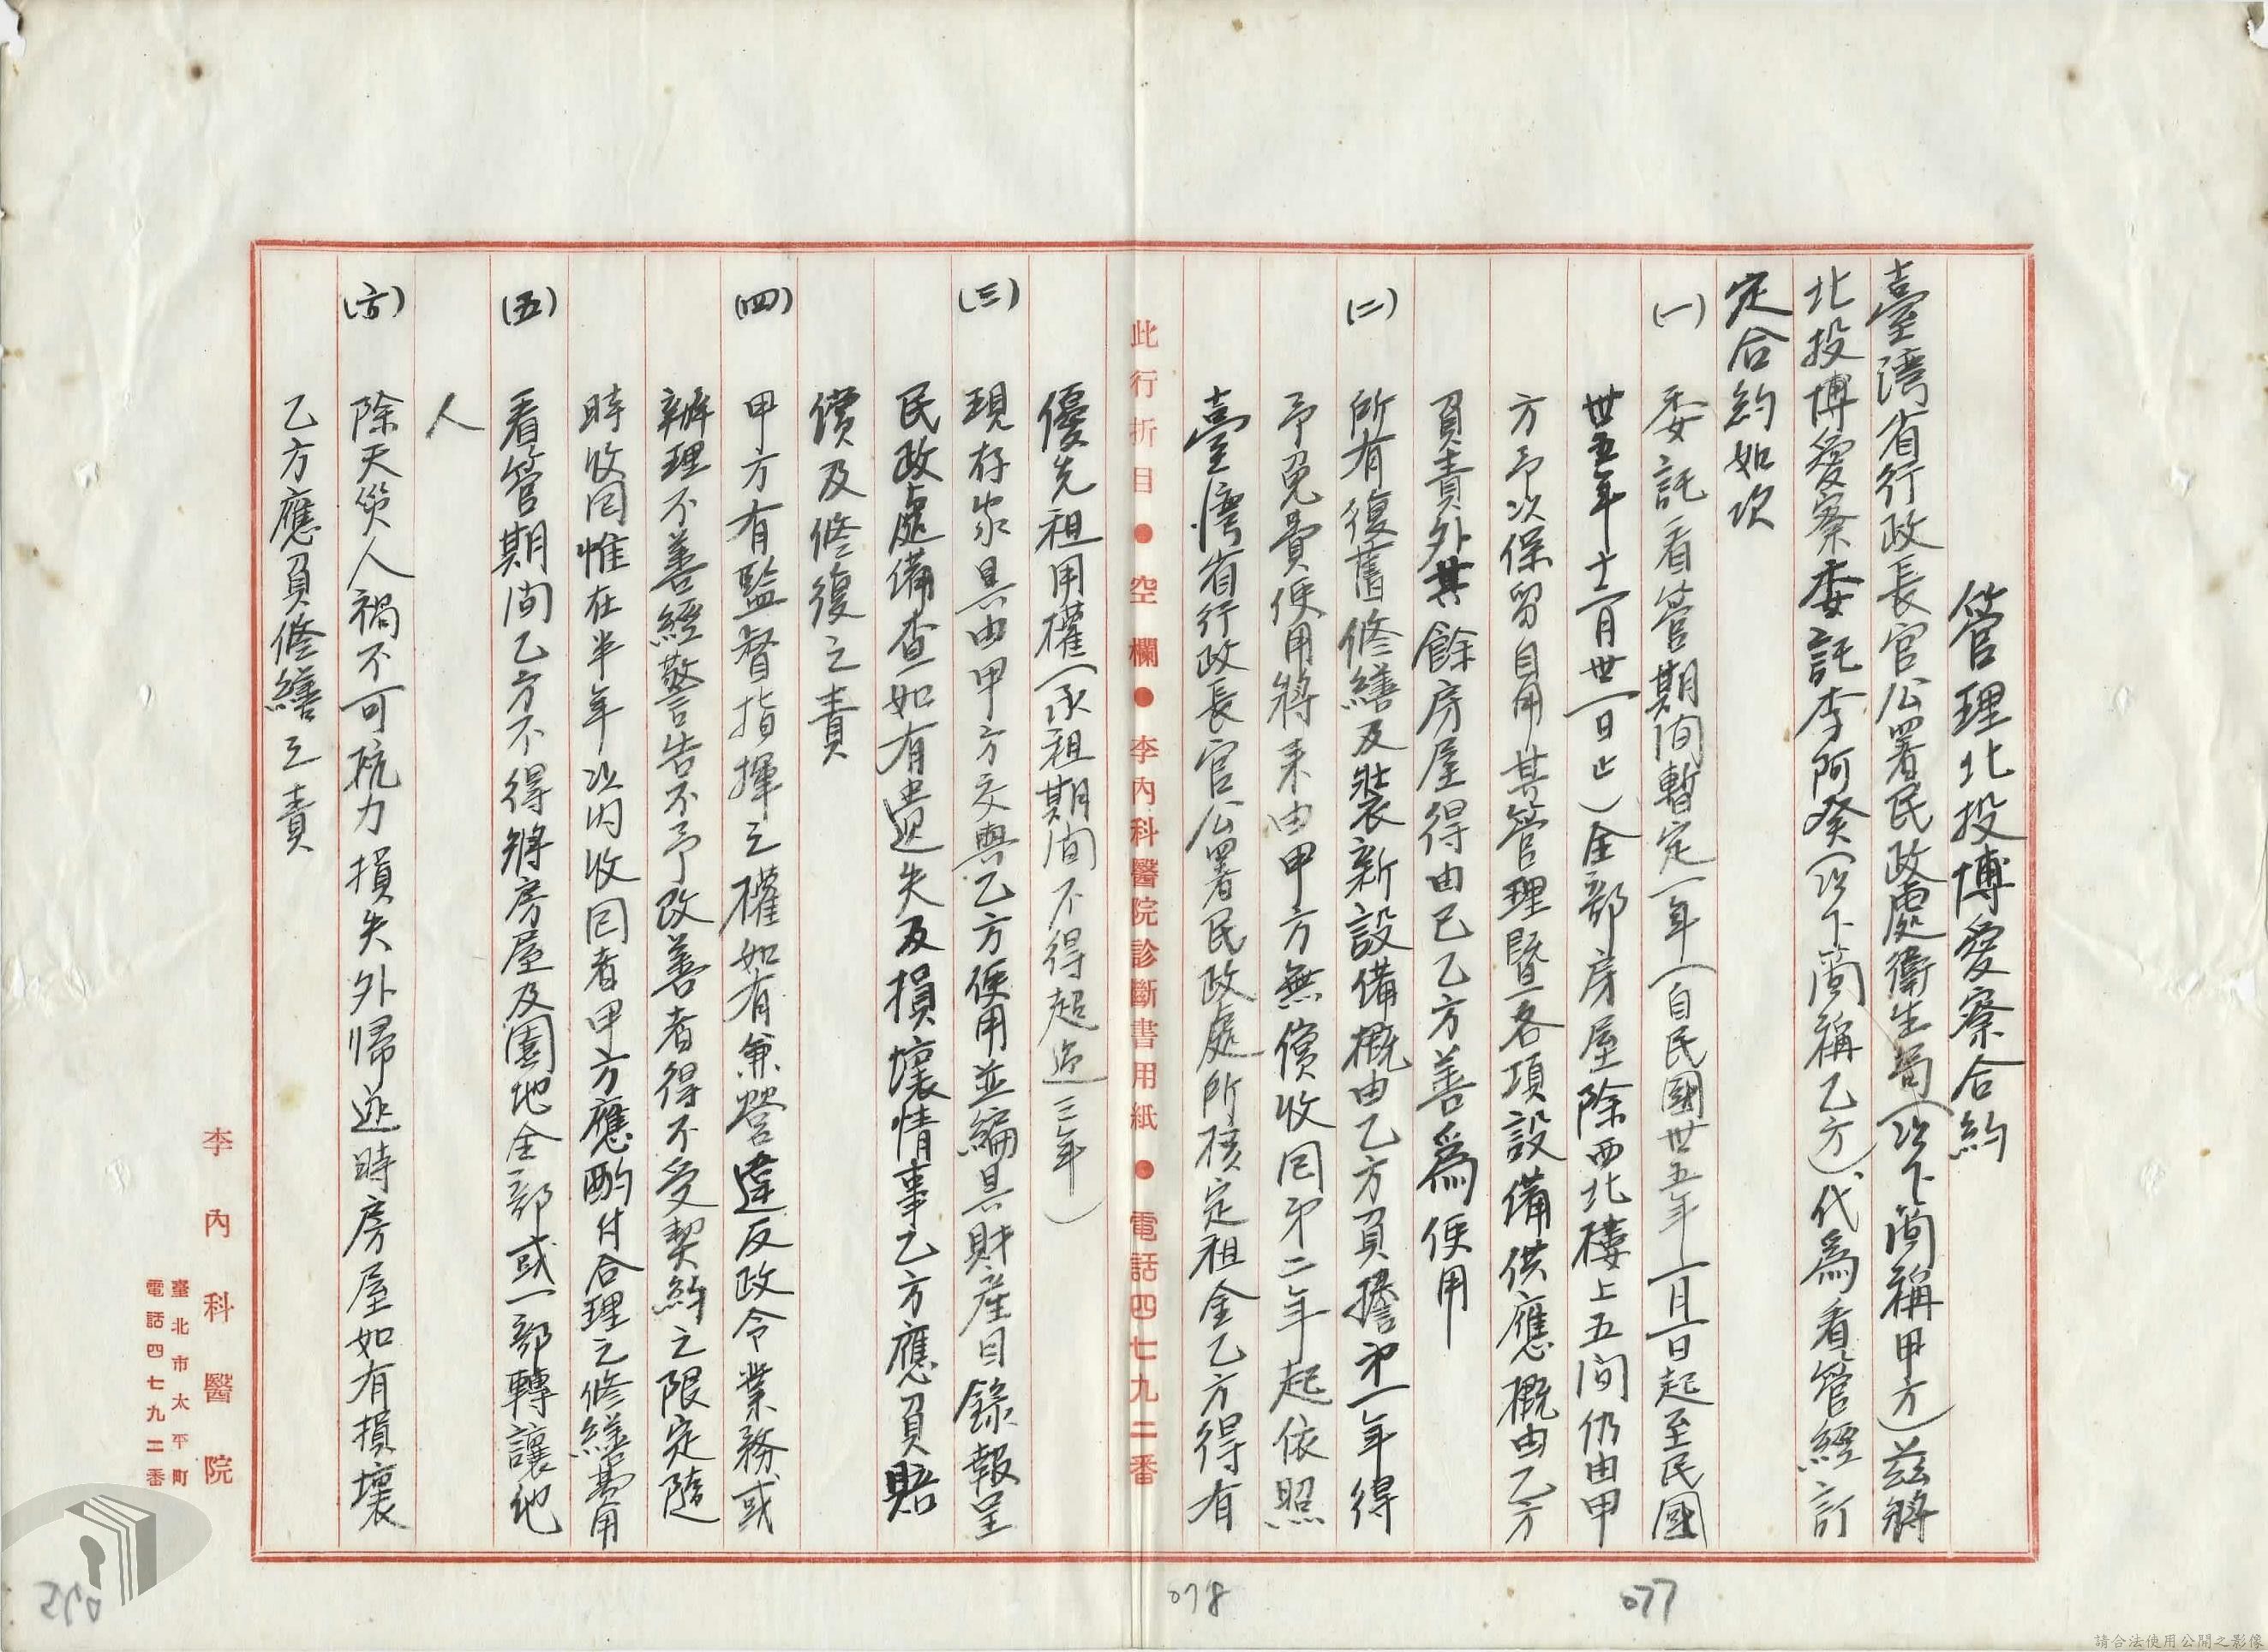 管理北投博愛寮合約
臺湾省行政長官公署民政處衛生局(以下简稱甲方)茲將
北投博愛寮委託李阿癸(以下简稱乙方)代為看管經訂
定合約如次
(一)委託看管期间暫定一年(自民國卅五年一月一日起至民國
卅五年十二月卅一日止)全部房屋除西北樓上五间仍由甲
方予以保留自用其管理暨各項設備供應概由乙方
負責外其餘房屋得由乙方善為使用
(二)所有復舊修繕及裝新設備概由乙方負擔第一年得
予免費使用將来由甲方無償收回第二年起依照
臺湾省行政長官公署民政處所核定租金乙方得有
此行折目●空欄●李內科醫院診斷書用紙●電話四七九二番
優先租用權(承租期间不得超過三年)
(三)現存家具由甲方交與乙方使用並編具財産目錄報呈
民政處備查如有遺失及損壞情事乙方應負賠
償及修復之責
(四)甲方有監督指揮之權如有兼營違反政令業務或
辦理不善經警告不予改善者得不受契約之限定隨
時收回惟在半年以内收回者甲方應酌付合理之修繕費用
(五)看管期间乙方不得將房屋及園地全部或一部轉讓他
人
(六)除天災人禍不可抗力損失外歸还時房屋如有損壞
乙方應負修繕之責
李內科醫院
臺北市太平町
電話四七九二番
077
078
請合法使用公開之影像